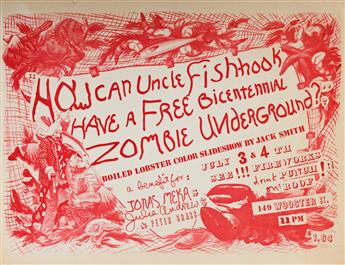 HOW CAN UNCLE FISHHOOK
HAVE A FREE BICENTENNIAL
ZOMBIE UNDERGROUND?
BOILED LOBSTER COLOR SLIDESHOW BY JACK SMITH
a benefit for:
JONAS MEKAS
Julie Andrews
& PETER
JULY 3 & 4 TH
SEE!!! FIREWORKS
drink PUNCH!!
on ROOF!
149 WOOSTER St.
11 PM
1.64